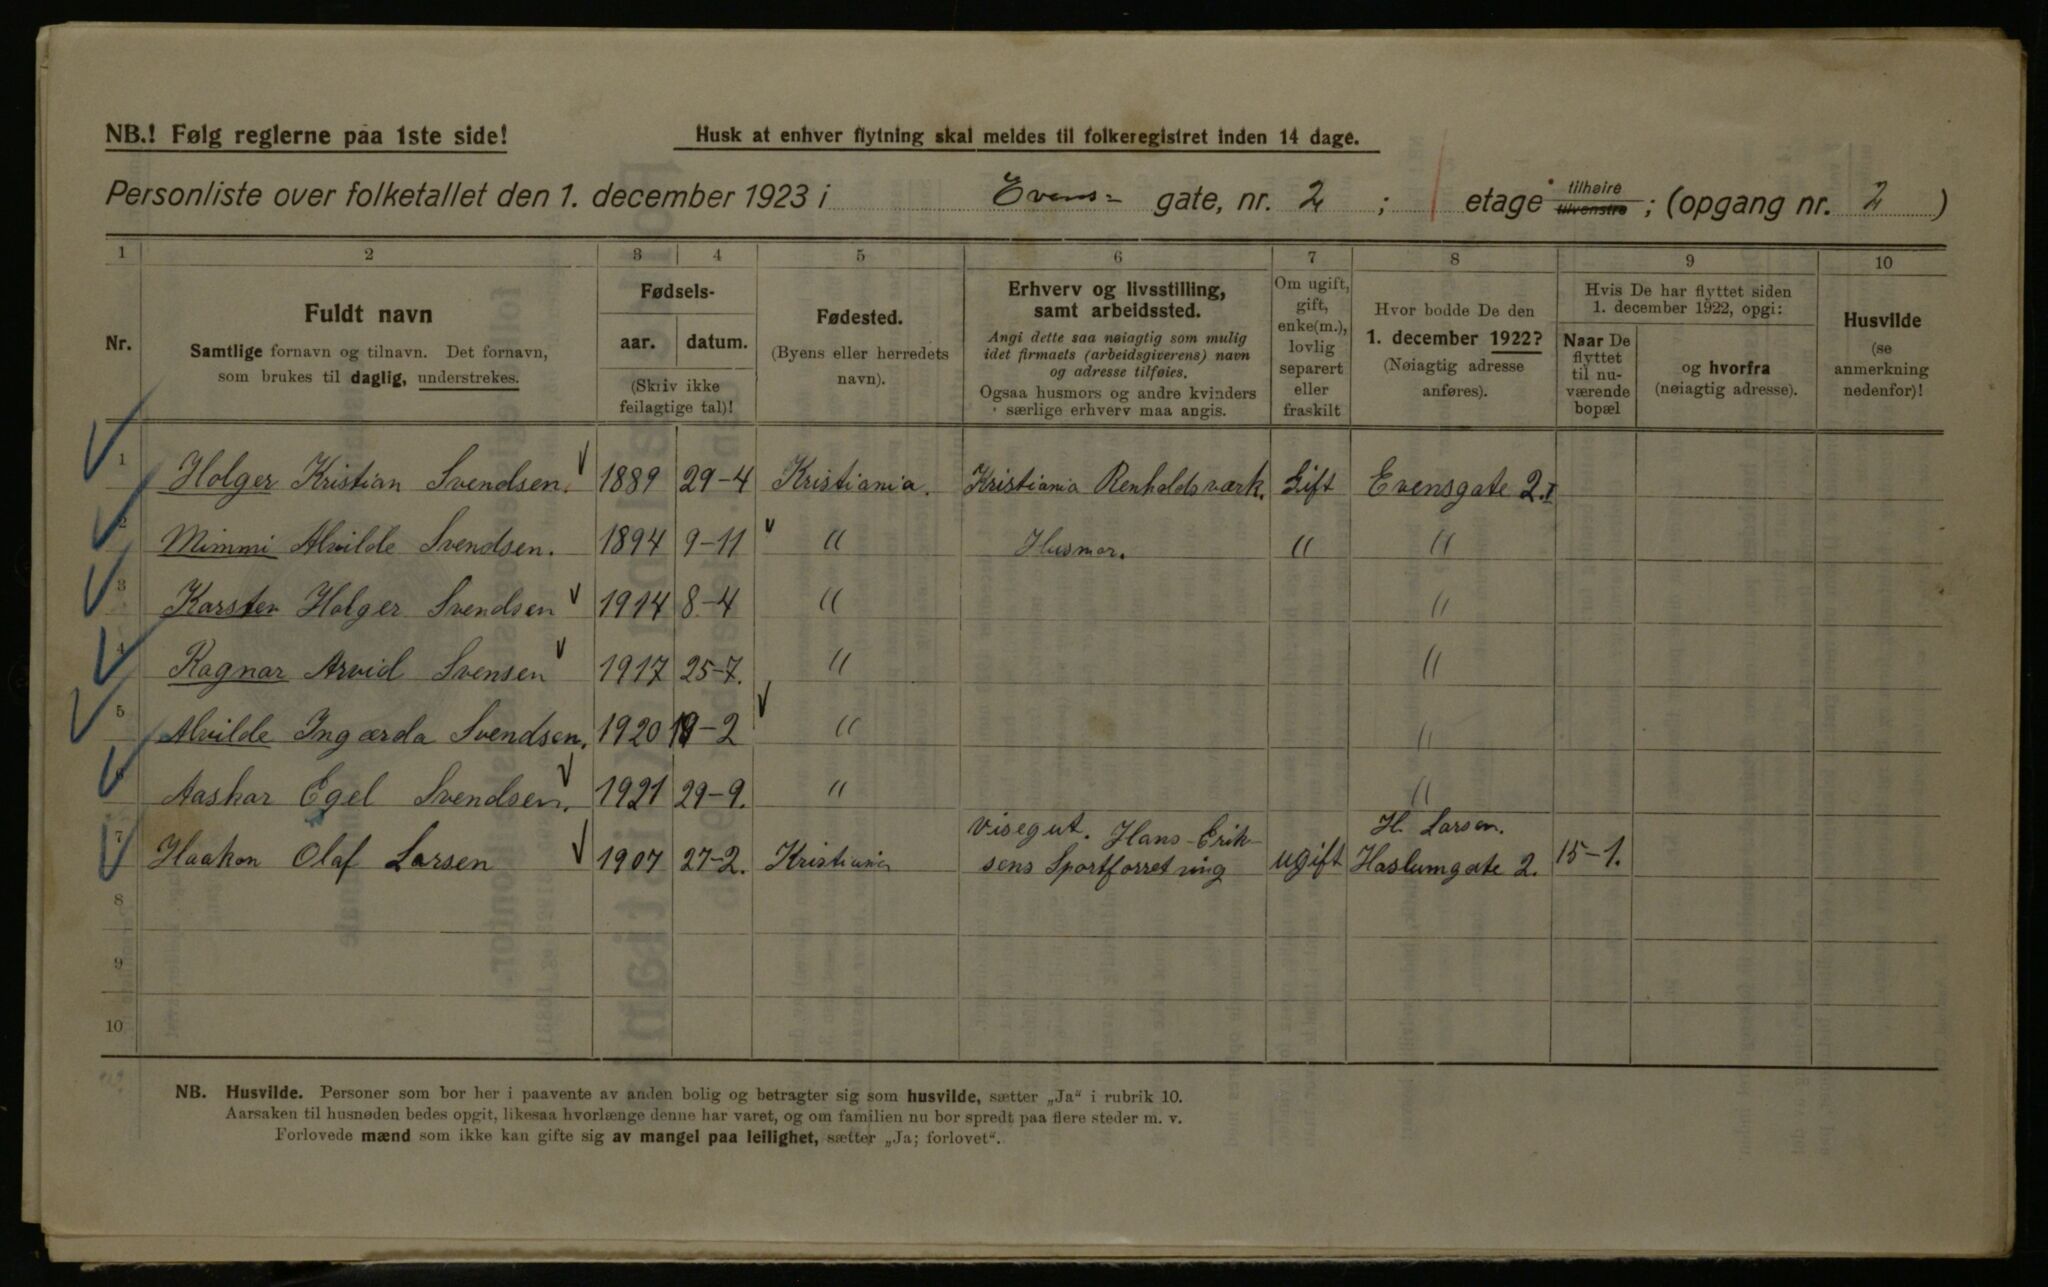 NB.! Følg reglerne paa 1ste side!
Husk at enhver flytning skal meldes til folkeregistret inden 14 dage.
Personliste over folketallet den 1. december 1923 i Evens- gate, nr. 2 ; 1 etage tilhøire tilvenstre ; (opgang nr. 2 )
1 2 3 4 5 6 7 8 9 10
Nr.
Fuldt navn
Samtlige fornavn og tilnavn. Det fornavn,
som brukes til daglig, understrekes.
Fødsels-
aar. datum.
(Skriv ikke
feilagtige tal)!
Fødested.
(Byens eller herredets
navn).
Erhverv og livsstilling,
samt arbeidssted.
Angi dette saa nøiagtig som mulig
idet firmaets (arbeidsgiverens) navn
og adresse tilføies.
Ogsaa husmors og andre kvinders
særlige erhverv maa angis.
Om ugift,
gift,
enke(m.),
lovlig
separert
eller
fraskilt
Hvor bodde De den
1. december 1922?
(Nøiagtig adresse
anføres).
Hvis De har flyttet siden
1. december 1922, opgi:
Naar De
flyttet
til nu-
værende
bopæl
og hvorfra
(nøiagtig adresse).
Husvilde
(se
anmerkning
nedenfor)!
1 Holger Kristian Svendsen. 1889 29-4 Kristiania. Kristiania Renholdsværk. Gift Evensgate 2.I
2 Mimmi Alvilde Svendsen. 1894 9-11 " Husmor. " "
3 Karsten Holger Svendsen 1914 8-4 " "
4 Ragnar Arvid Svensen 1917 25-7. " "
5 Alvilde Ingærda Svendsen. 1920 19-2 " "
6 Aaskar Egel Svendsen. 1921 29-9. " "
7 Haakon Olaf Larsen 1907 27-2. Kristiania Visegut. Hans Erik-
sens Sportforretning ugift H. Larsen.
Haslumgate 2. 15-1.
8
9
10
NB. Husvilde. Personer som bor her i paavente av anden bolig og betragter sig som husvilde, sætter „Ja“ i rubrik 10.
Aarsaken til husnøden bedes opgit, likesaa hvorlænge denne har varet, og om familien nu bor spredt paa flere steder m. v.
Forlovede mænd som ikke kan gifte sig av mangel paa leilighet, sætter „Ja; forlovet“.